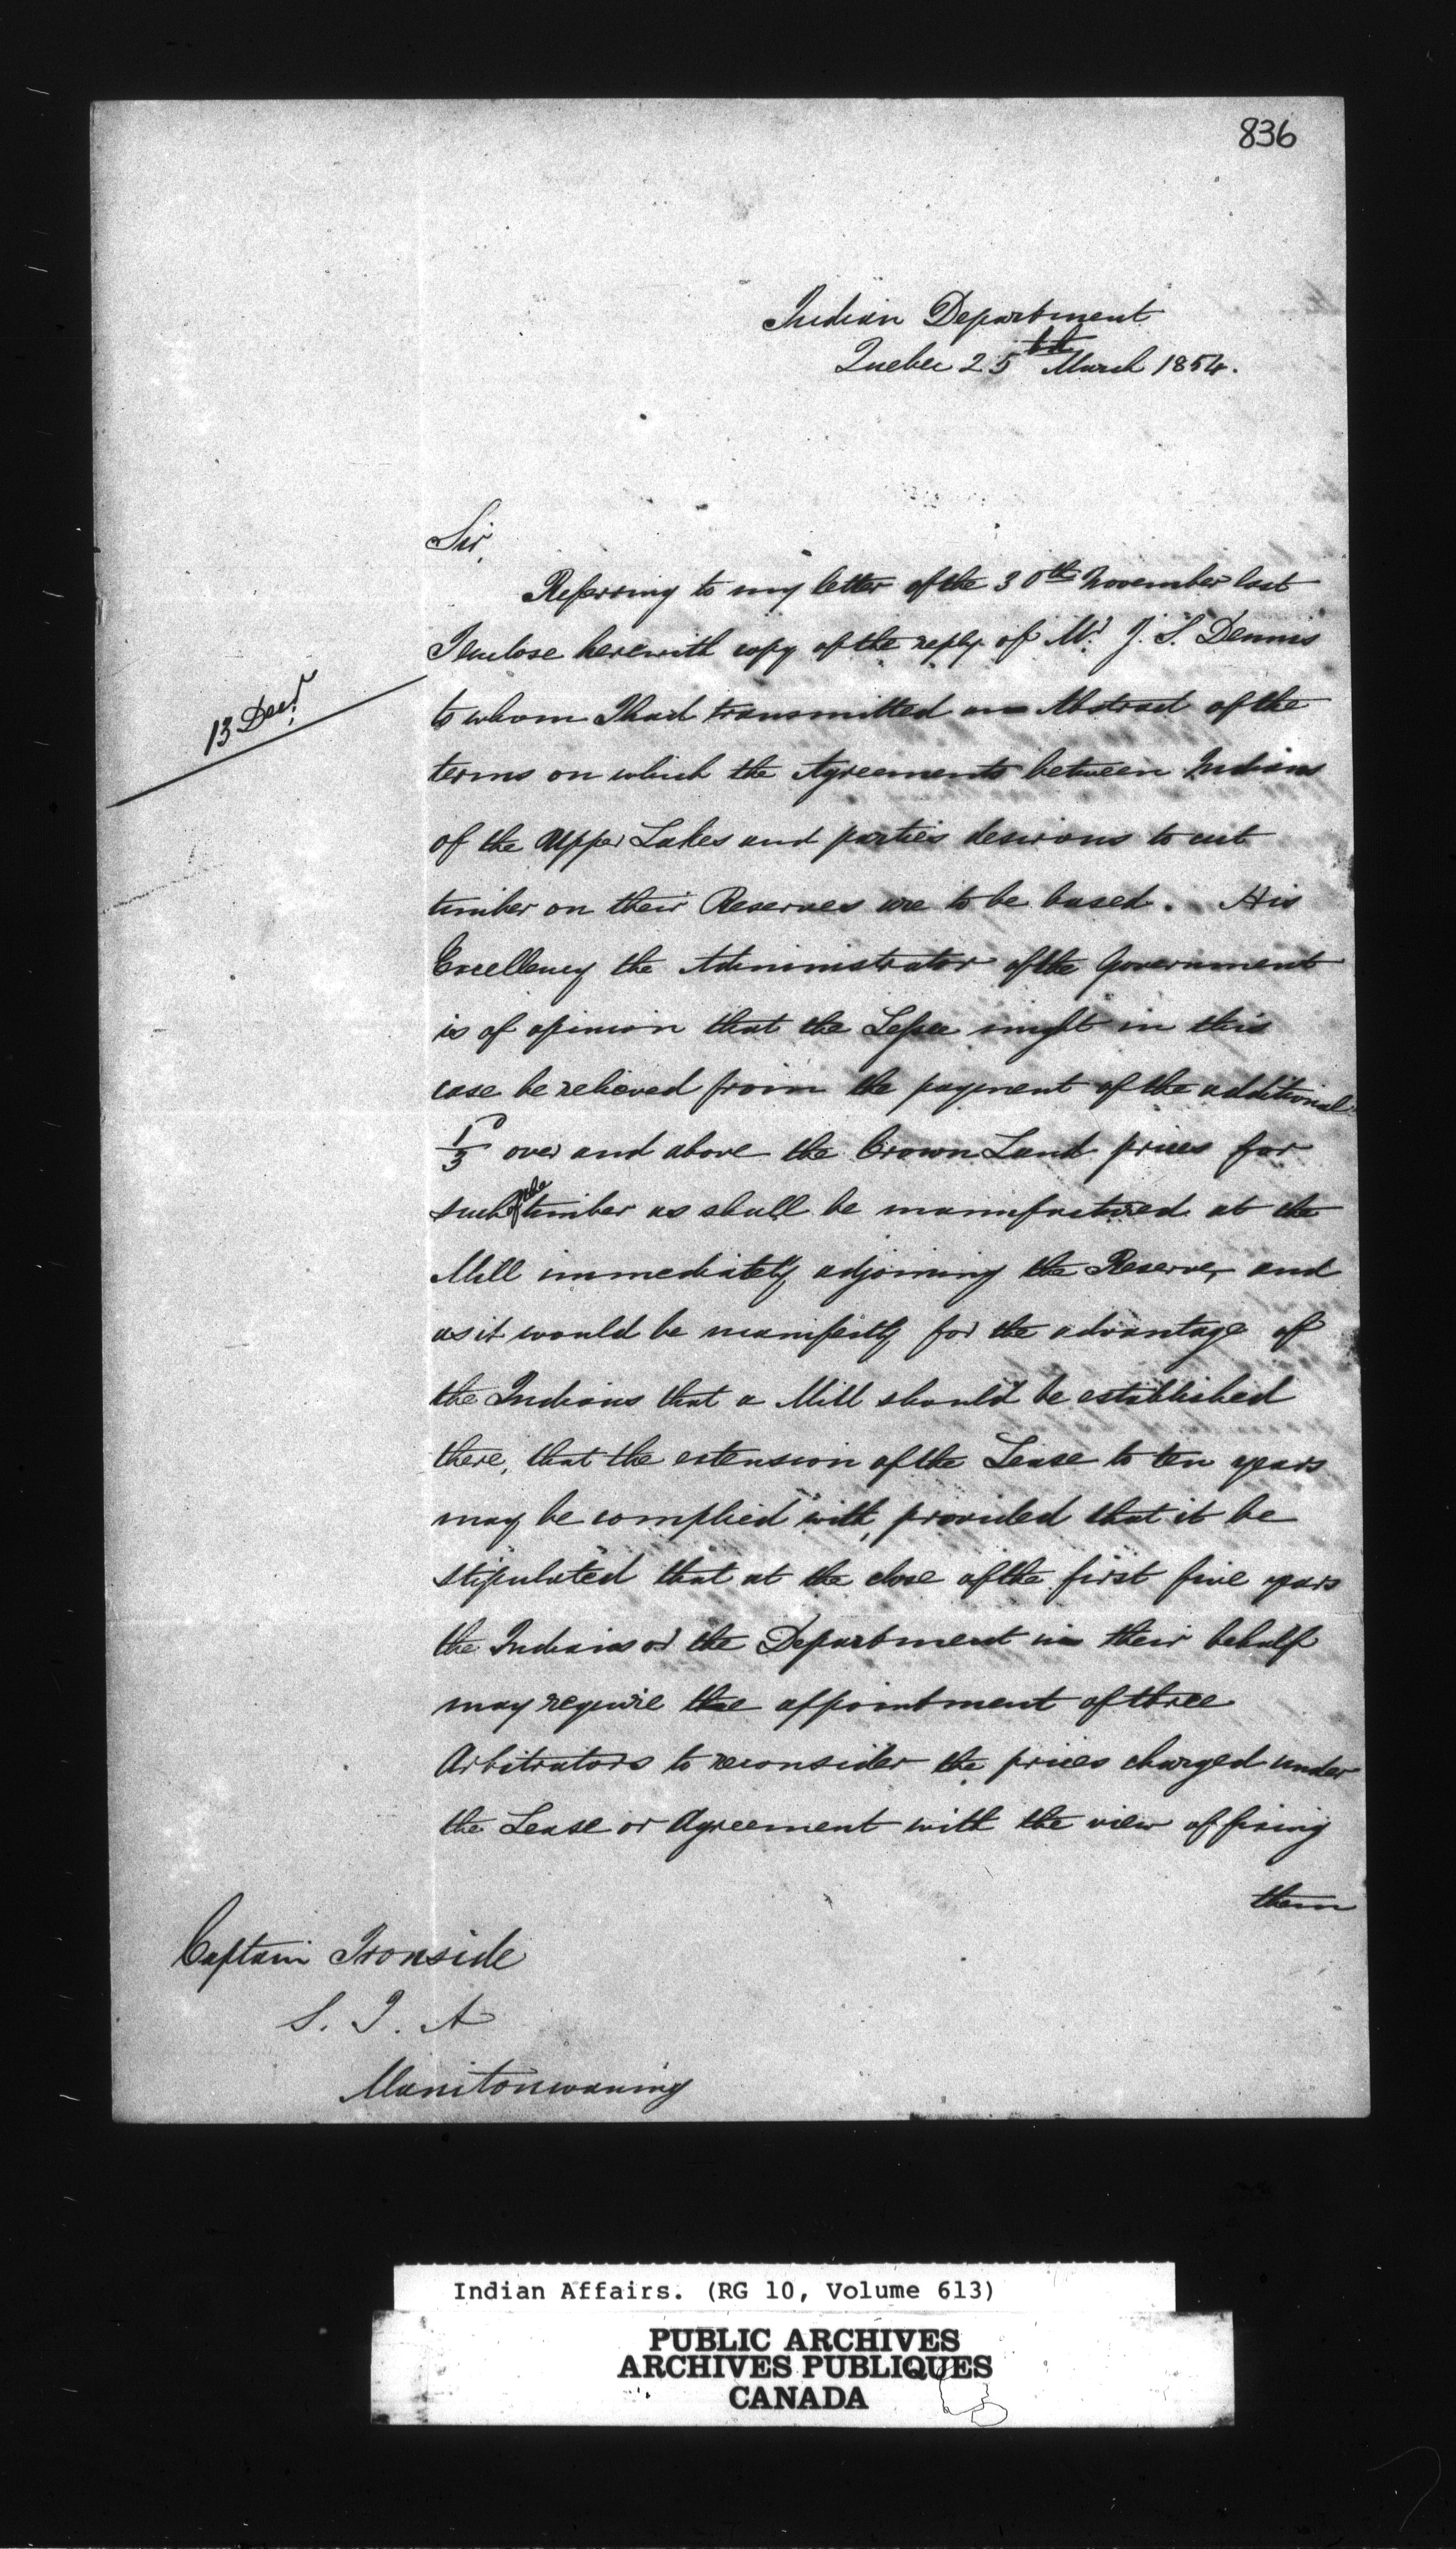 836
Indian Department
Quebec 25th March 1854.
Sir,
Referring to my letter of the 30th November last
I enclose herewith copy of the reply of Mr. J. S. Dennis
13 Decr.
to whom I had transmitted an Abstract of the
terms on which the Agreements between Indians
of the Upper Lakes and parties desirous to cut
timber on their Reserves are to be based. His
Excellency the Administrator of the Government
is of opinion that the Lessee might in this
case be relieved from the payment of the additional
1/3 over and above the Crown Land prices for
such of the timber as shall be manufactured at the
Mill immediately adjoining the Reserve, and
as it would be manifestly for the advantage of
the Indians that a Mill should be established
there, that the extension of the Lease to ten years
may be complied with, provided that it be
stipulated that at the close of the first five years
the Indians or the Department in their behalf
may require the appointment of three
Arbitrators to reconsider the prices charged under
the Lease or Agreement with the view of fixing
them
Captain Ironside
S. I. A
Manitouwaning
Indian Affairs. (RG 10, Volume 613)
PUBLIC ARCHIVES
ARCHIVES PUBLIQUES
CANADA